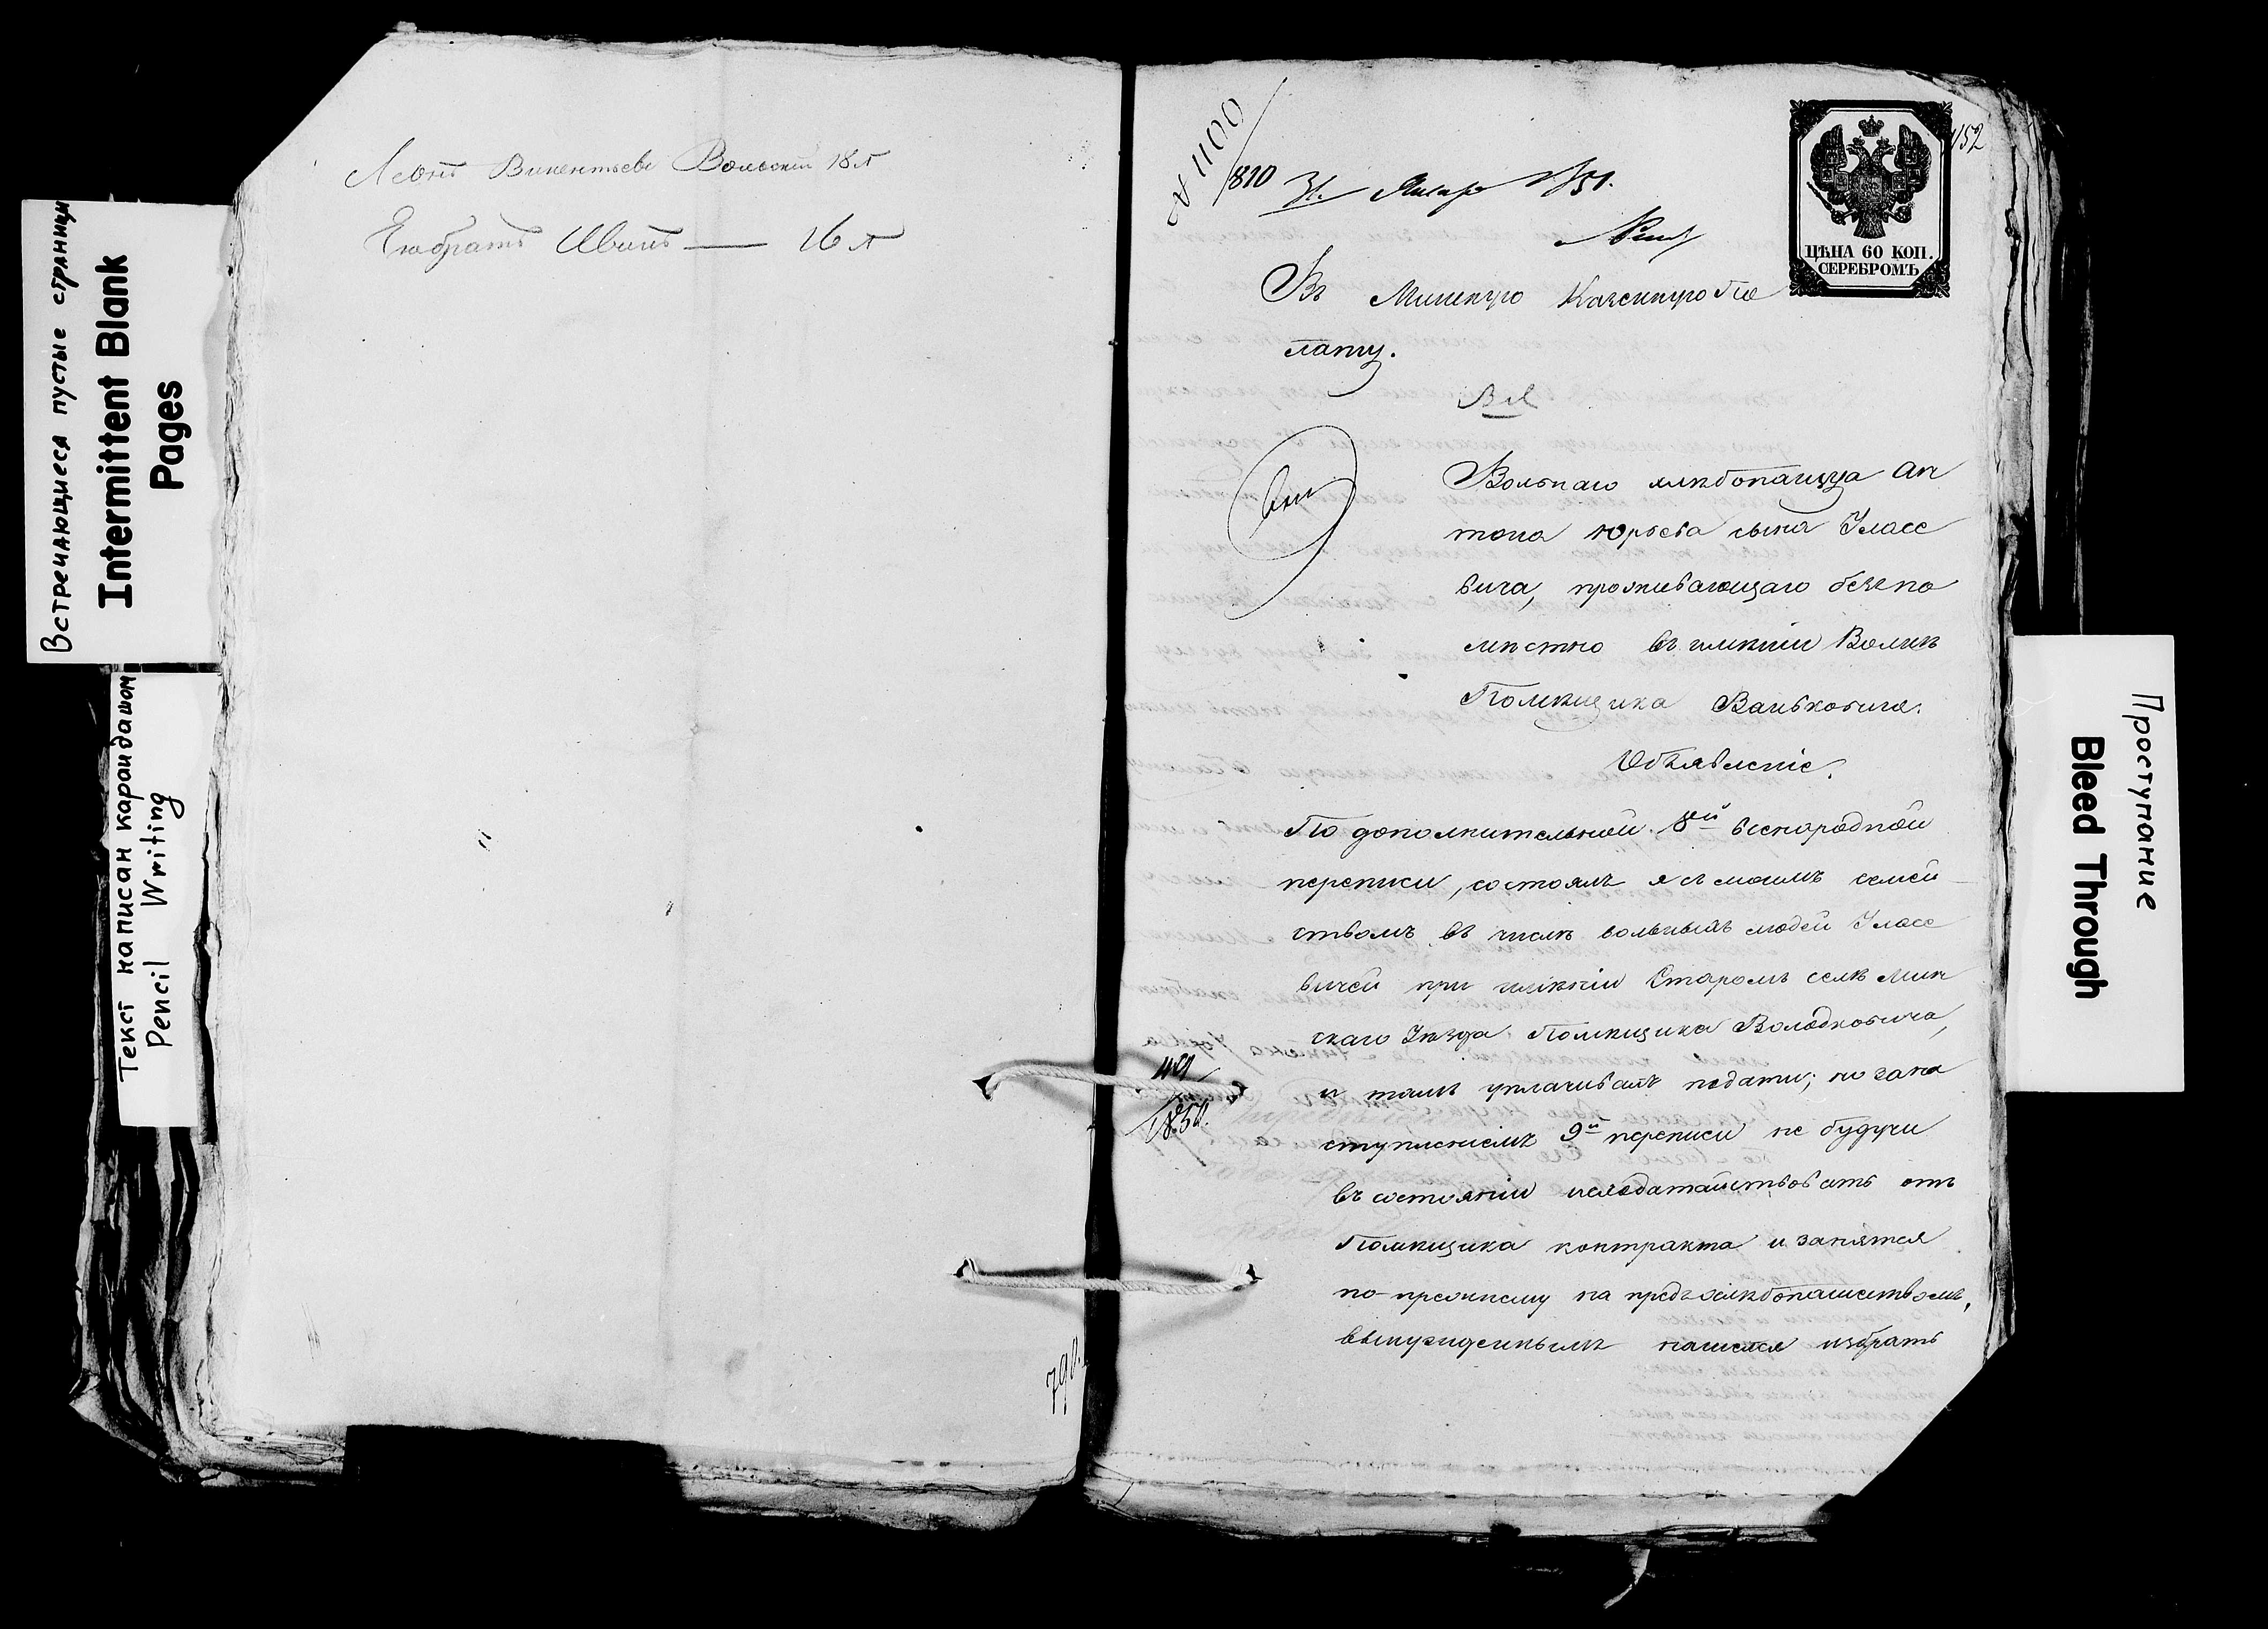 Встречающиеся пустые страницы
Intermittent Blank
Pages
Текст написан карандашом
Pencil Writing
Леонъ Викентьевъ Вольскій 18 л
Его братъ Иванъ — 16 л
798.
№ 1100
810
31. Января 1851.
1152
ЦѢНА 60 КОП.
СЕРЕБРОМЪ
Въ Минскую Казенную Па
лату.
Вольнаго хлѣбопашца Ан
тона Юрьева сына Уласе
вича, проживающаго безпо
мѣстно въ имѣніи
Помѣщика Ваньковича.
Объявленіе.
По дополнительной 8й всенародной
переписи, состоялъ я съ моимъ семей
ствомъ въ числѣ вольныхъ людей Уласе
вичей при имѣніи Старомъ селѣ Мин
скаго Уѣзда Помѣщика Володковича,
и тамъ уплачивалъ подати; но за на
ступленіемъ 9й переписи не будучи
въ состояніи исходатайствовать отъ
Помѣщика контракта и занятся
по-прежнему на предъ хлѣбопашествомъ,
вынужденнымъ нашелся избрать
449
1850.
Проступание
Bleed Through